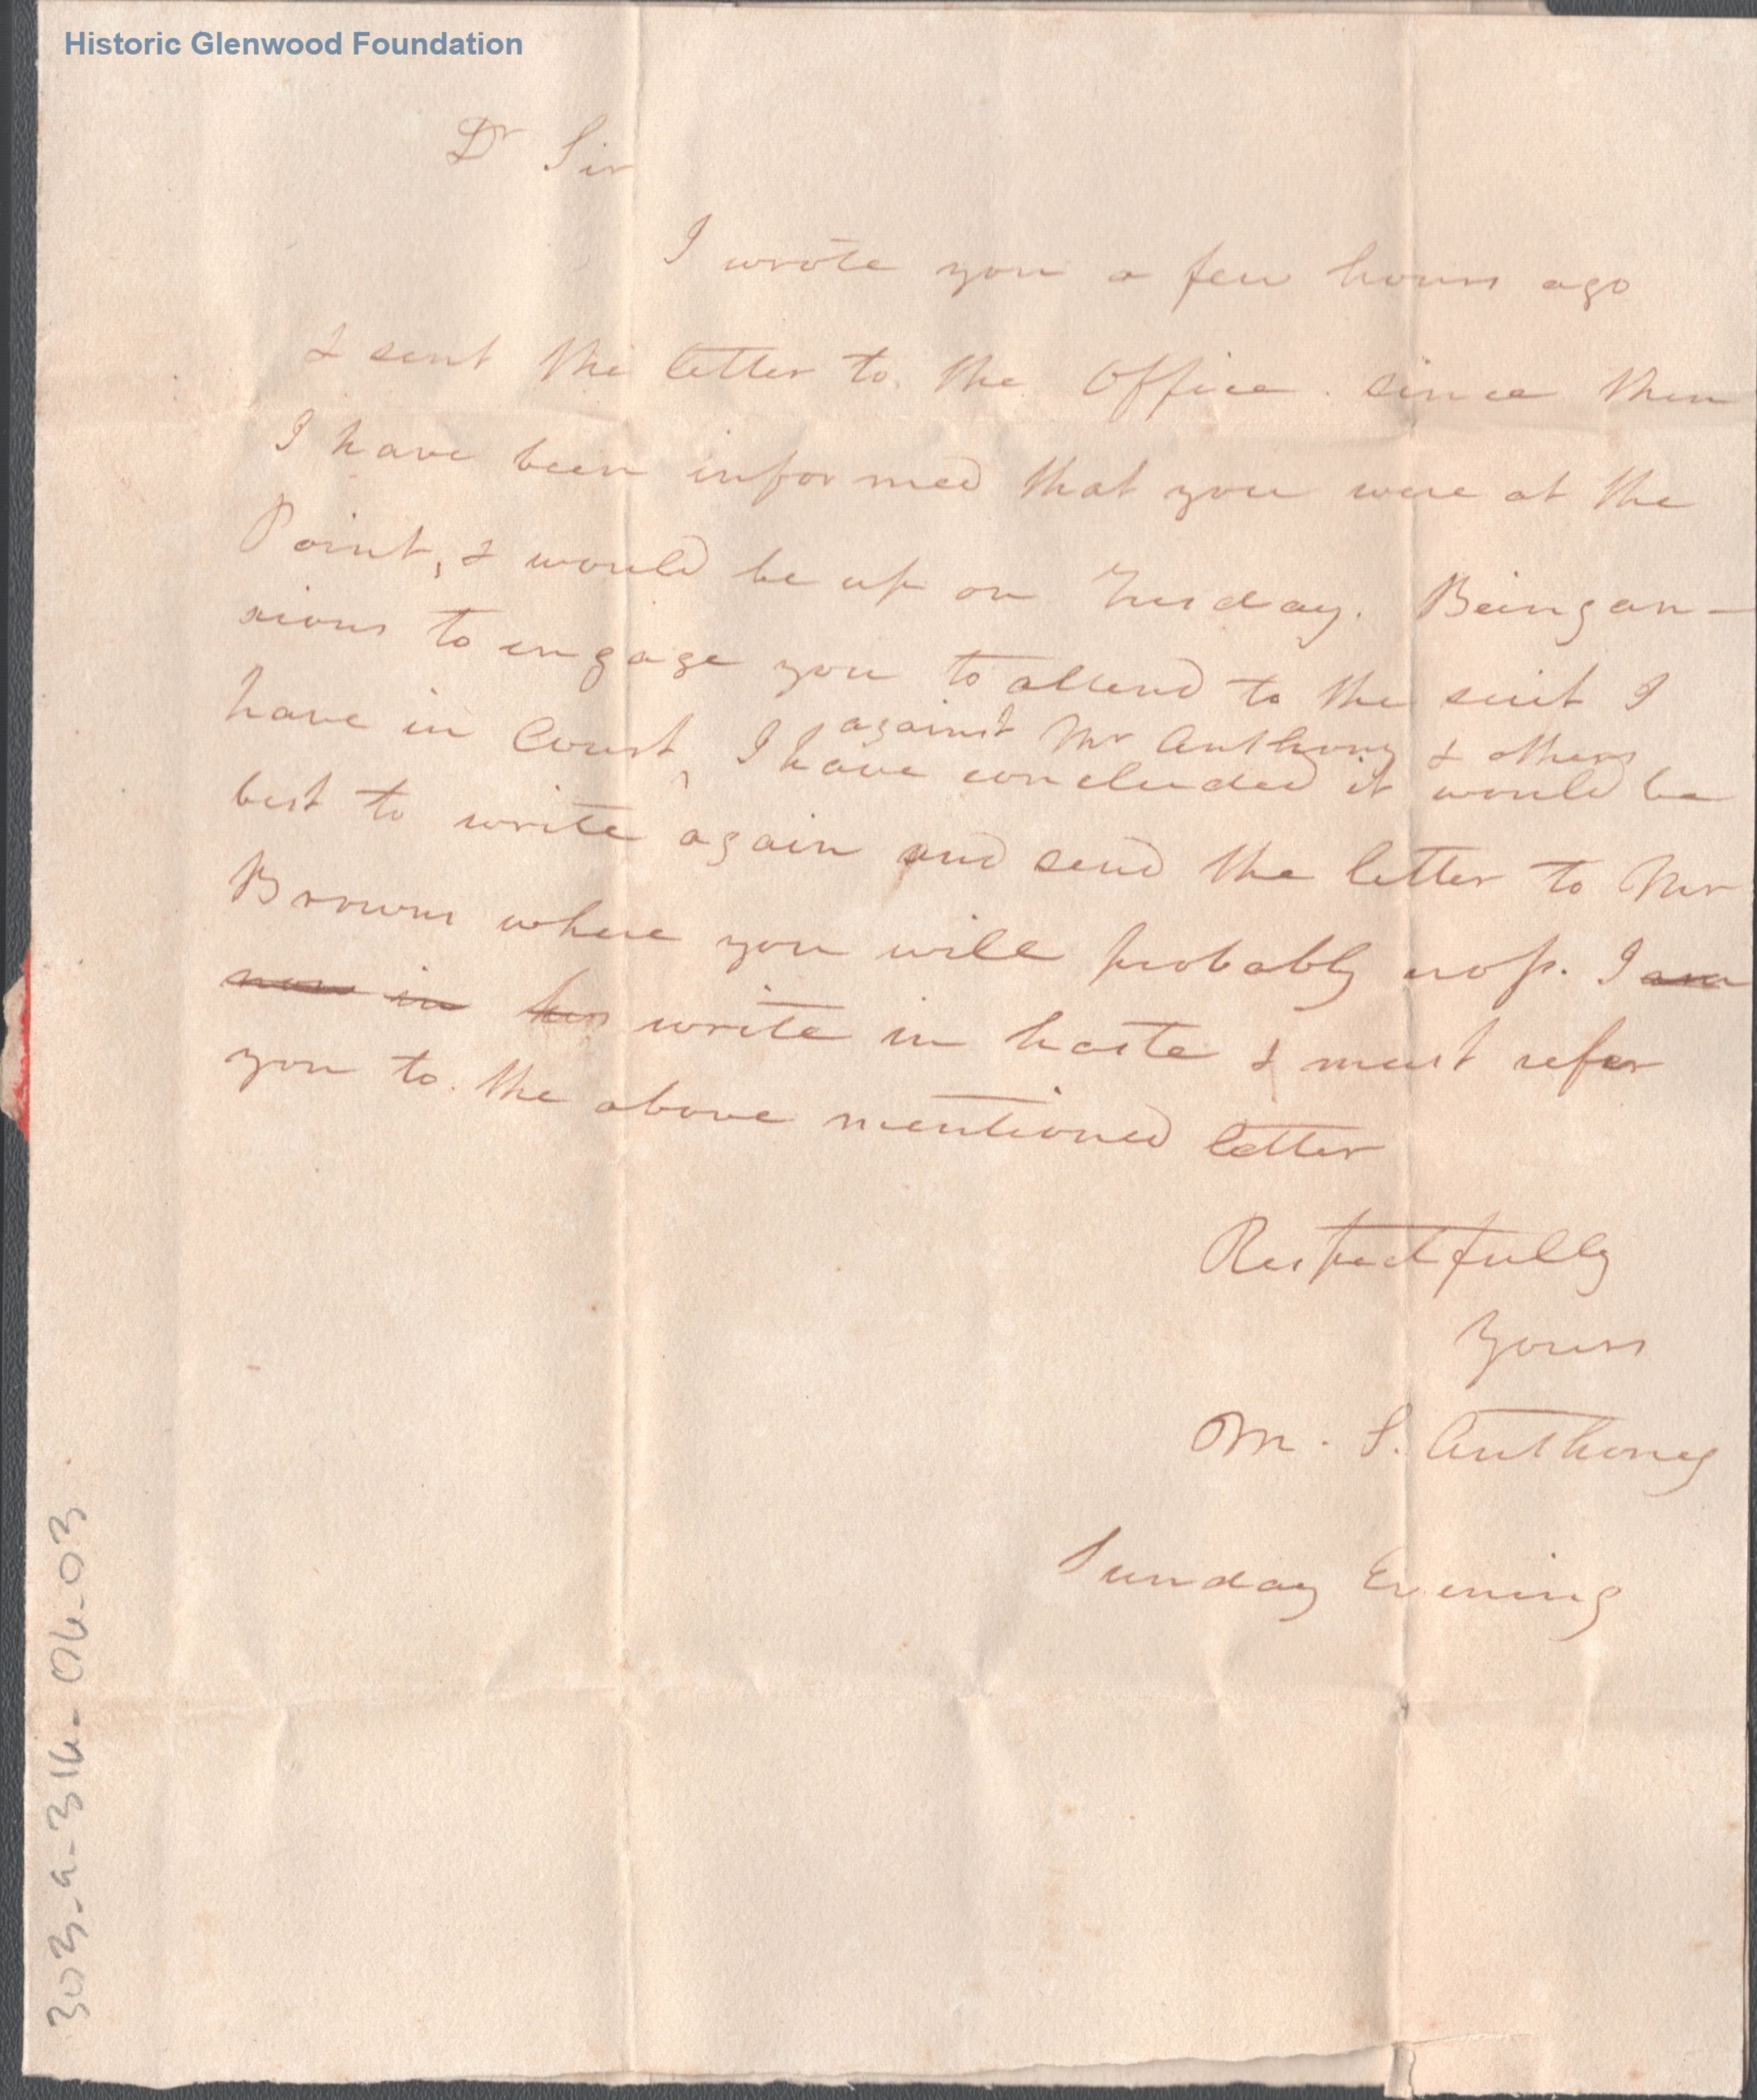 Historic Glenwood Foundation
Dr Sir
I wrote you a few hours ago
& sent the letter to the Office. since then
I have been informed that you were at the
Point, & would be up on Tuesday. Being an-
xious to engage you to attend to the suit I
against Mr Anthony & others
have in Court, ^ I have concluded it would be
best to write again and send the letter to Mr
Browns where you will probably . I am
now in write in haste & must refer
you to the above mentioned letter
Respectfully
Yours
M. S. Anthony
Sunday Evening
303-a-316-06-03